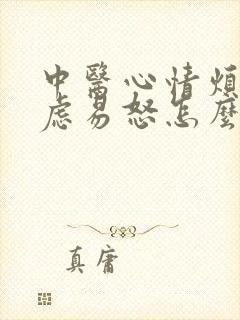 中醫心情煩
虑易怒怎麼
真庸